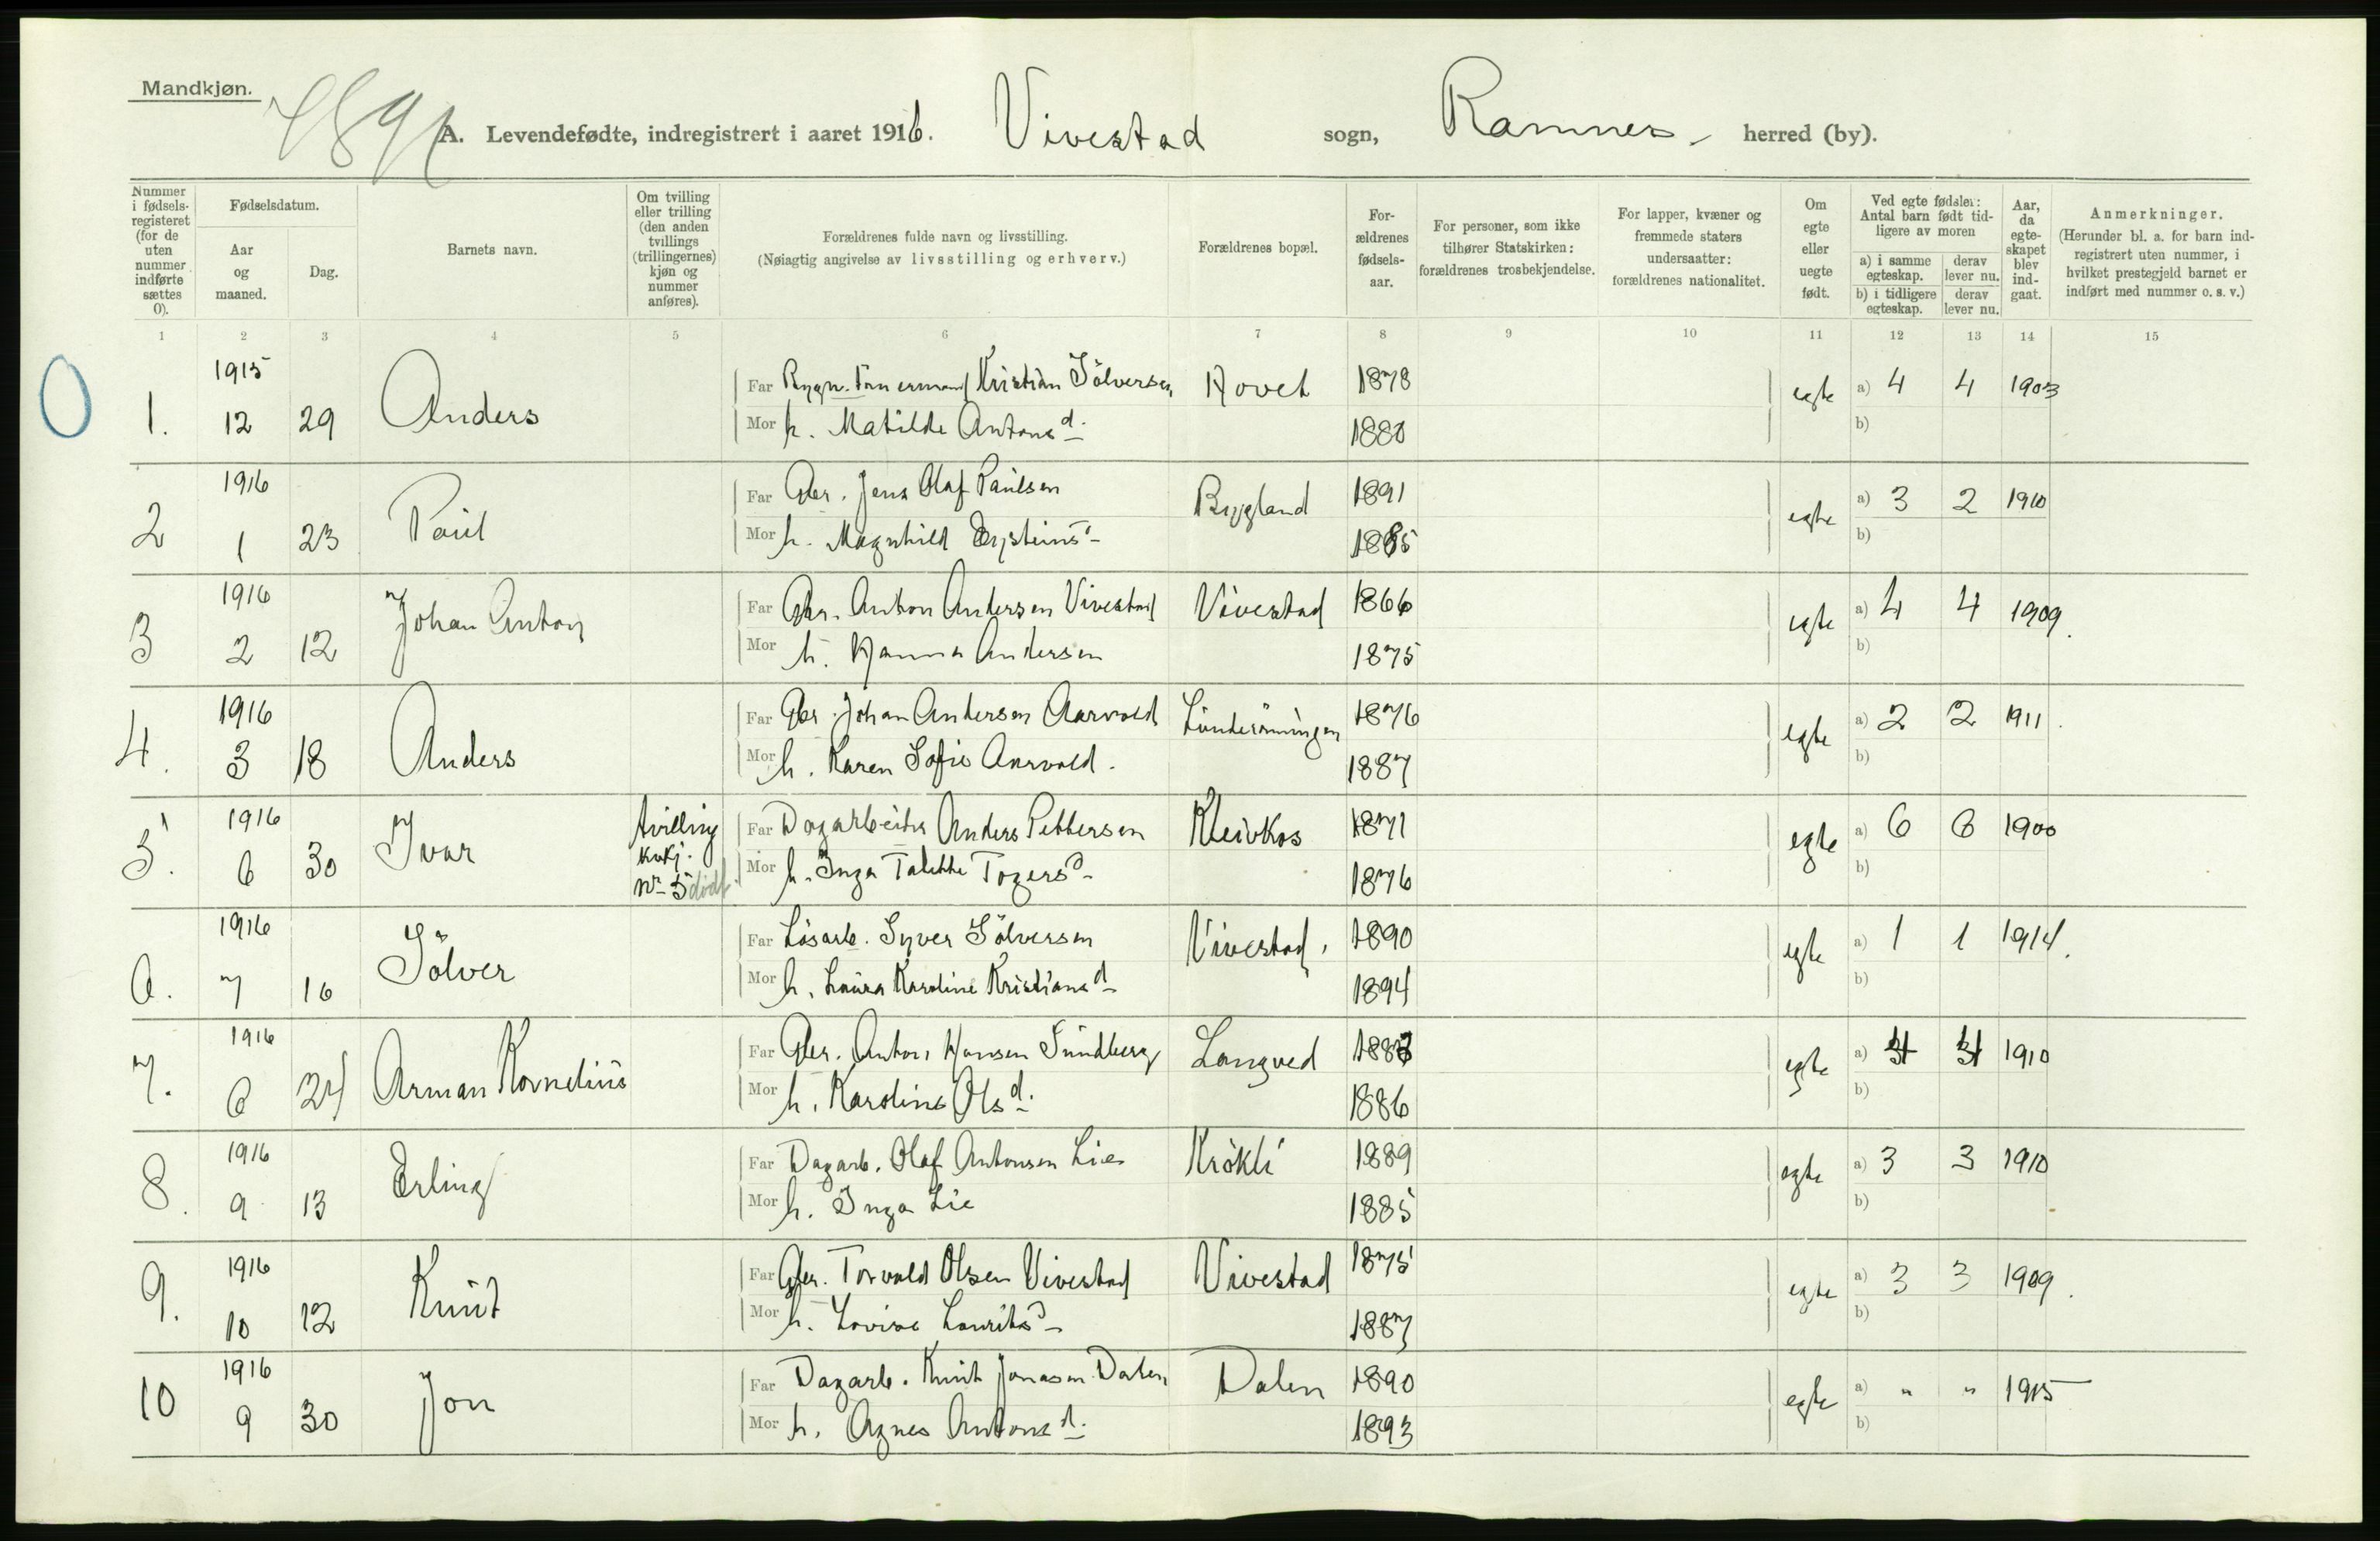 Mandkjøn.
A. Levendefødte, indregistrert i aaret 1916. Vivestad sogn, Ramnes herred (by).
Nummer i fødsels-registeret (for de uten nummer indførte sættes 0).
Fødselsdatum.
Aar og maaned.
Dag.
Barnets navn.
Om tvilling eller trilling (den anden tvillings (trillingernes) kjøn og nummer anføres).
Forældrenes fulde navn og livsstilling.
(Nøiagtig angivelse av livsstilling og erhverv.)
Forældrenes bopæl.
For-ældrenes fødsels-aar.
For personer, som ikke tilhører Statskirken: forældrenes trosbekjendelse.
For lapper, kvæner og fremmede staters undersaatter: forældrenes nationalitet.
Om egte eller uegte født.
Ved egte fødsler: Antal barn født tid-ligere av moren
a) i samme egteskap. derav lever nu.
b) i tidligere egteskap. derav lever nu.
Aar, da egte-skapet blev ind-gaat.
Anmerkninger.
(Herunder bl. a. for barn ind-registrert uten nummer, i hvilket prestegjeld barnet er indført med nummer o. s. v.)
1 2 3 4 5 6 7 8 9 10 11 12 13 14 15
0
1915 Far Kristian Sölversen Hovet 1878 egte a) 4 4 1903
1. 12 29 Anders Mor h. Matilde Antonsd. 1880 b)
1916 Far Gbr. Jens Olaf Paulsen Bygland 1891 egte a) 3 2 1910
2 1 23 Paul Mor h. Magnhild Eysteinsd. 1885 b)
1916 Far Gbr. Anton Andersen Vivestad Vivestad 1866 egte a) 4 4 1909.
3 2 12 Johan Anton Mor h. Hanna Andersen 1875 b)
1916 Far Gbr. Johan Andersen Aarvold 1876 egte a) 2 2 1911.
4. 3 18 Anders Mor h. Karen Sofie Aarvold. 1887 b)
1916 tvilling Far Dagarbeider Anders Pettersen Kleivkas 1871 egte a) 6 6 1900
5. 6 30 Ivar kvkj. nr 5 død. Mor h. Inga Talette Togersd. 1876 b)
1916 Far Lösarb. Syver Sölversen Vivestad, 1890 egte a) 1 1 1914.
6. 7 16 Sölver Mor h. Laura Karoline Kristiansd. 1894 b)
1916 Far Gbr. Anton Hansen Sundberg Langved 1883 egte a) b) 1910
7. 6 24 Arman Kornelius Mor h. Karoline Olsd. 1886
1916 Far Dagarb. Olaf Antonsen Lie Krökli 1889 egte a) 3 3 1910
8. 9 13 Erling Mor h. Inga Lie 1885 b)
1916 Far Gbr. Torvald Olsen Vivestad Vivestad 1875 egte a) 3 3 1909.
9. 10 12 Knut Mor h. Lovise Lauritsd. 1887 b)
1916 Far Dagarb. Knut Jonasen Dalen Dalen 1890 egte a) " " 1915
10 9 30 Jon Mor h. Agnes Antonsd. 1893 b)